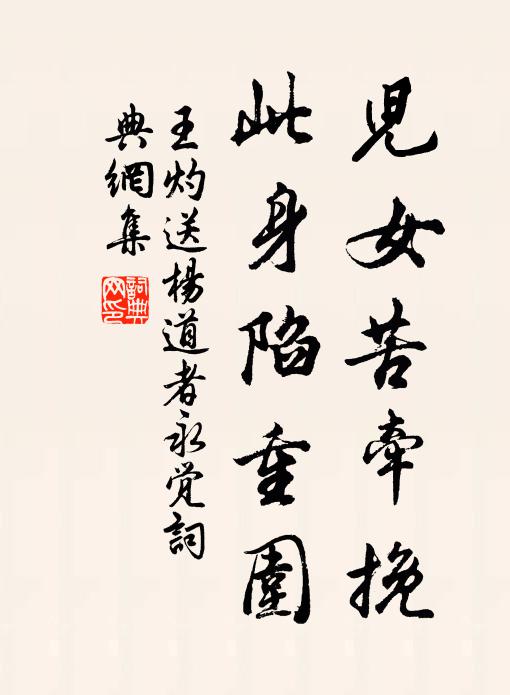 児女苦牽挽
此身陷重圍
王灼送楊道者永覚詞
典網集
詞典
网印